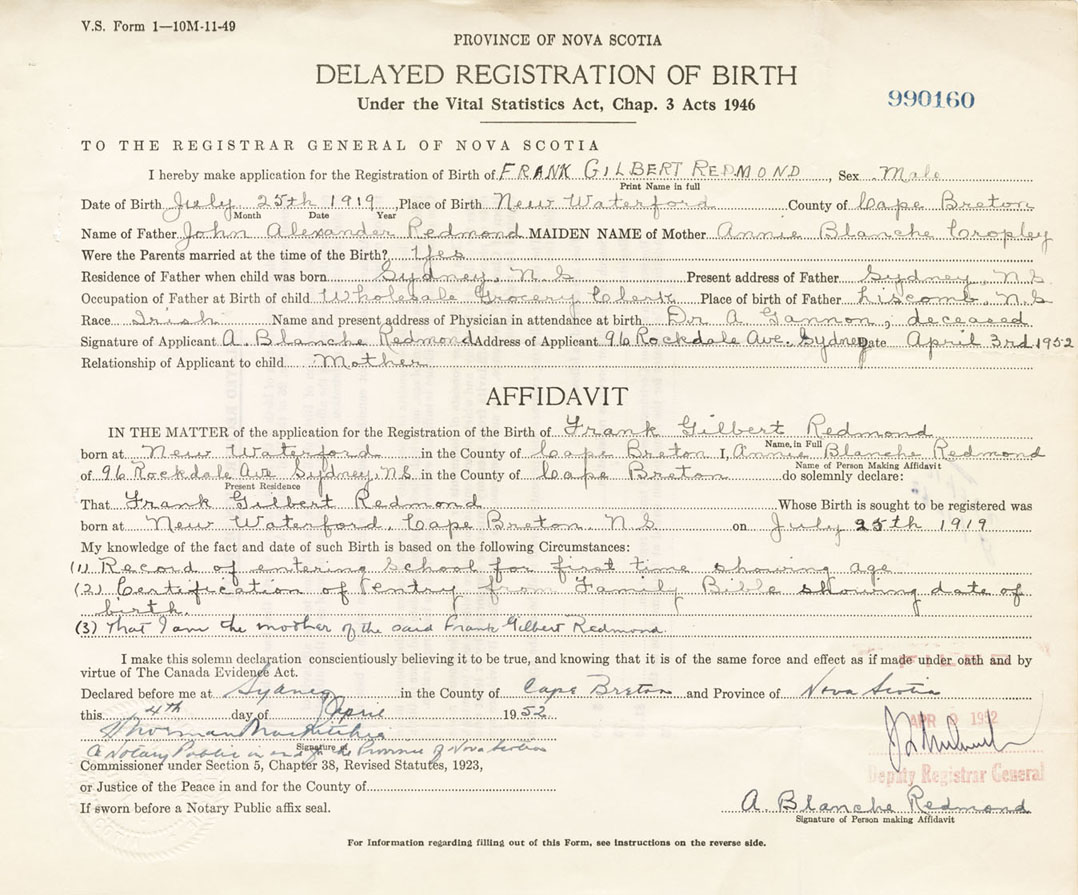 V.S. Form 1—10M-11-49
PROVINCE OF NOVA SCOTIA
DELAYED REGISTRATION OF BIRTH
Under the Vital Statistics Act, Chap. 3 Acts 1946
990160
TO THE REGISTRAR GENERAL OF NOVA SCOTIA
I hereby make application for the Registration of Birth of FRANK GILBERT REDMOND, Sex Male
Print Name in full
Date of Birth July 25th 1919, Place of Birth New Waterford County of Cape Breton
Month Date Year
Name of Father John Alexander Redmond MAIDEN NAME of Mother Annie Blanche Cropley
Were the Parents married at the time of the Birth? Yes
Residence of Father when child was born Sydney, N S Present address of Father Sydney, N.S
Occupation of Father at Birth of child Wholesale Grocery Clerk Place of birth of Father Liscomb, N.S
Race Irish Name and present address of Physician in attendance at birth Dr A Gannon, deceased
Signature of Applicant A. Blanche Redmond Address of Applicant 96 Rockdale Ave. Sydney Date April 3rd 1952
Relationship of Applicant to child Mother
AFFIDAVIT
IN THE MATTER of the application for the Registration of the Birth of Frank Gilbert Redmond
Name, in Full
born at New Waterford in the County of Cape Breton I, Annie Blanche Redmond
Name of Person Making Affidavit
of 96 Rockdale Ave Sydney, N.S in the County of Cape Breton do solemnly declare:
Present Residence
That Frank Gilbert Redmond Whose Birth is sought to be registered was
born at New Waterford, Cape Breton, N S on July 25th 1919
My knowledge of the fact and date of such Birth is based on the following Circumstances:
(1) Record of entering School for first time showing age
(2) Certification of entry from Family Bible showing date of
birth.
(3) That I am the mother of the said Frank Gilbert Redmond.
I make this solemn declaration conscientiously believing it to be true, and knowing that it is of the same force and effect as if made under oath and by
virtue of The Canada Evidence Act.
Declared before me at Sydney in the County of Cape Breton and Province of Nova Scotia
this 4th day of April 1952
APR 9 1952
Signature of
A Notary Public in and for the Province of Nova Scotia
Commissioner under Section 5, Chapter 38, Revised Statutes, 1923,
Deputy Registrar General
or Justice of the Peace in and for the County of
If sworn before a Notary Public affix seal.
A. Blanche Redmond
Signature of Person making Affidavit
For Information regarding filling out of this Form, see instructions on the reverse side.